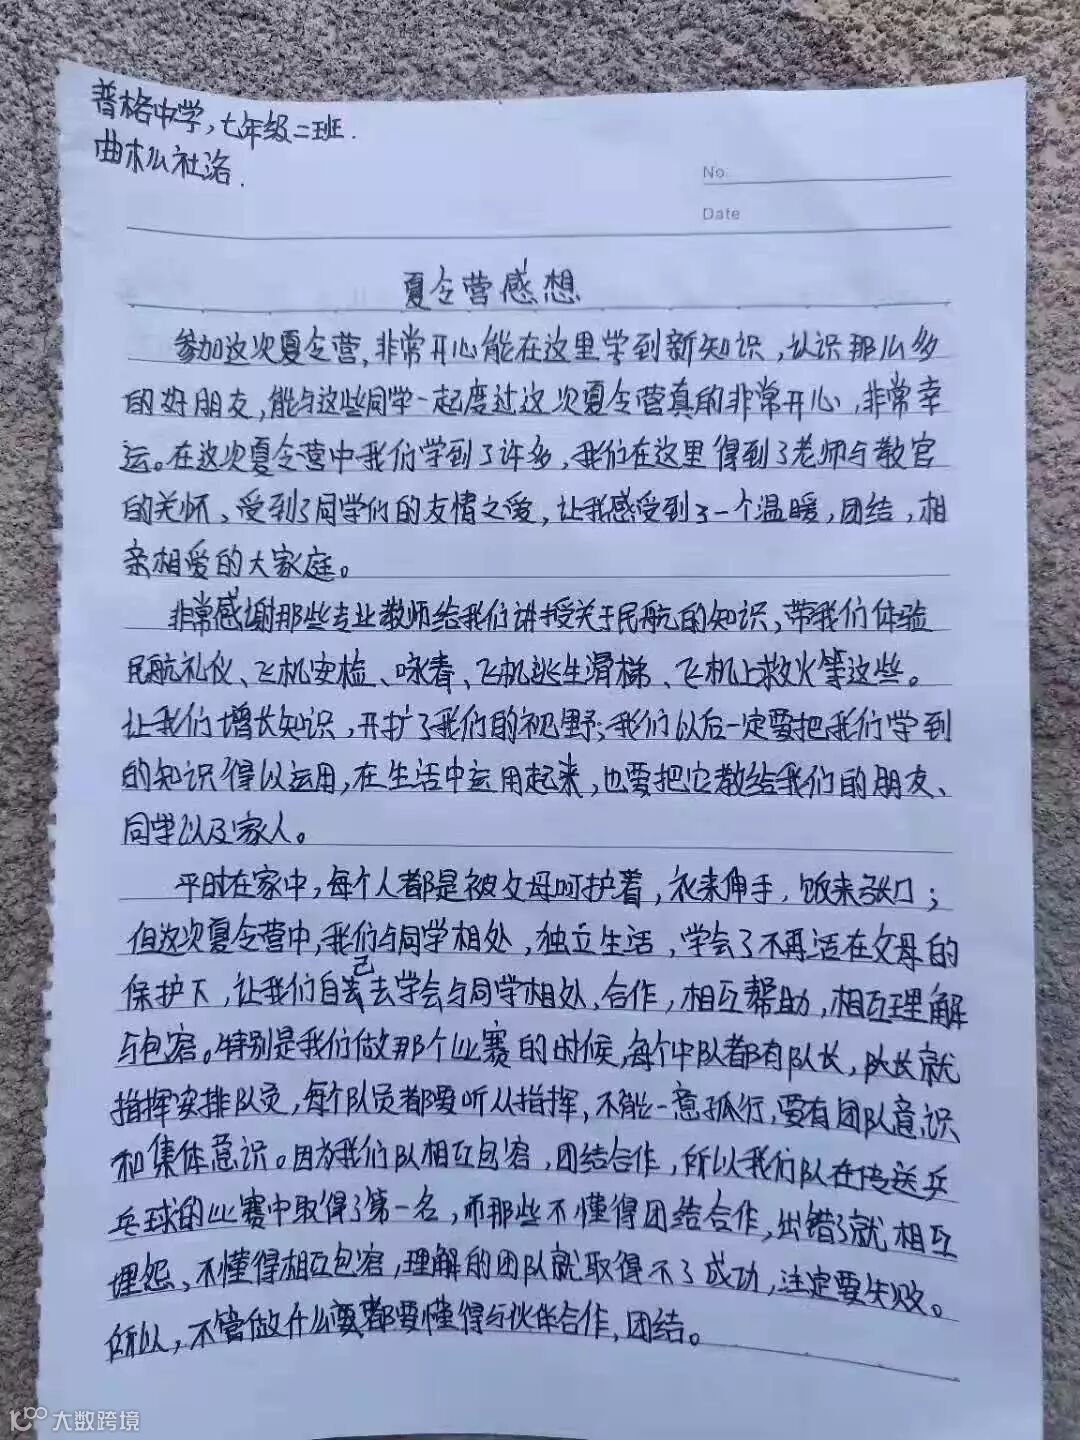 普格中学,七年级二班.
曲木么社洛.
No.
Date
夏令营感想
参加这次夏令营,非常开心能在这里学到新知识,认识那么多
的好朋友,能与这些同学一起度过这次夏令营真的非常开心,非常幸
运。在这次夏令营中我们学到了许多,我们在这里得到了老师与教官
的关怀、受到了同学们的友情之爱,让我感受到了一个温暖,团结,相
亲相爱的大家庭。
非常感谢那些专业教师给我们讲授关于民航的知识,带我们体验
民航礼仪、飞机安检、咏春、飞机逃生滑梯、飞机上救火等这些。
让我们增长知识,开扩了我们的视野;我们以后一定要把我们学到
的知识得以运用,在生活中运用起来,也要把它教给我们的朋友、
同学以及家人。
平时在家中,每个人都是被父母呵护着,衣来伸手,饭来张口;
但这次夏令营中,我们与同学相处,独立生活,学会了不再活在父母的
保护下,让我们自己去学会与同学相处、合作,相互帮助,相互理解
与包容。特别是我们做那个比赛的时候,每个中队都有队长,队长就
指挥安排队员,每个队员都要听从指挥,不能一意孤行,要有团队意识
和集体意识。因为我们队相互包容,团结合作,所以我们队在传送乒
乓球的比赛中取得了第一名,而那些不懂得团结合作,出错了就相互
埋怨、不懂得相互包容,理解的团队就取得不了成功,注定要失败。
所以,不管做什么都要懂得与伙伴合作、团结。
大数跨境